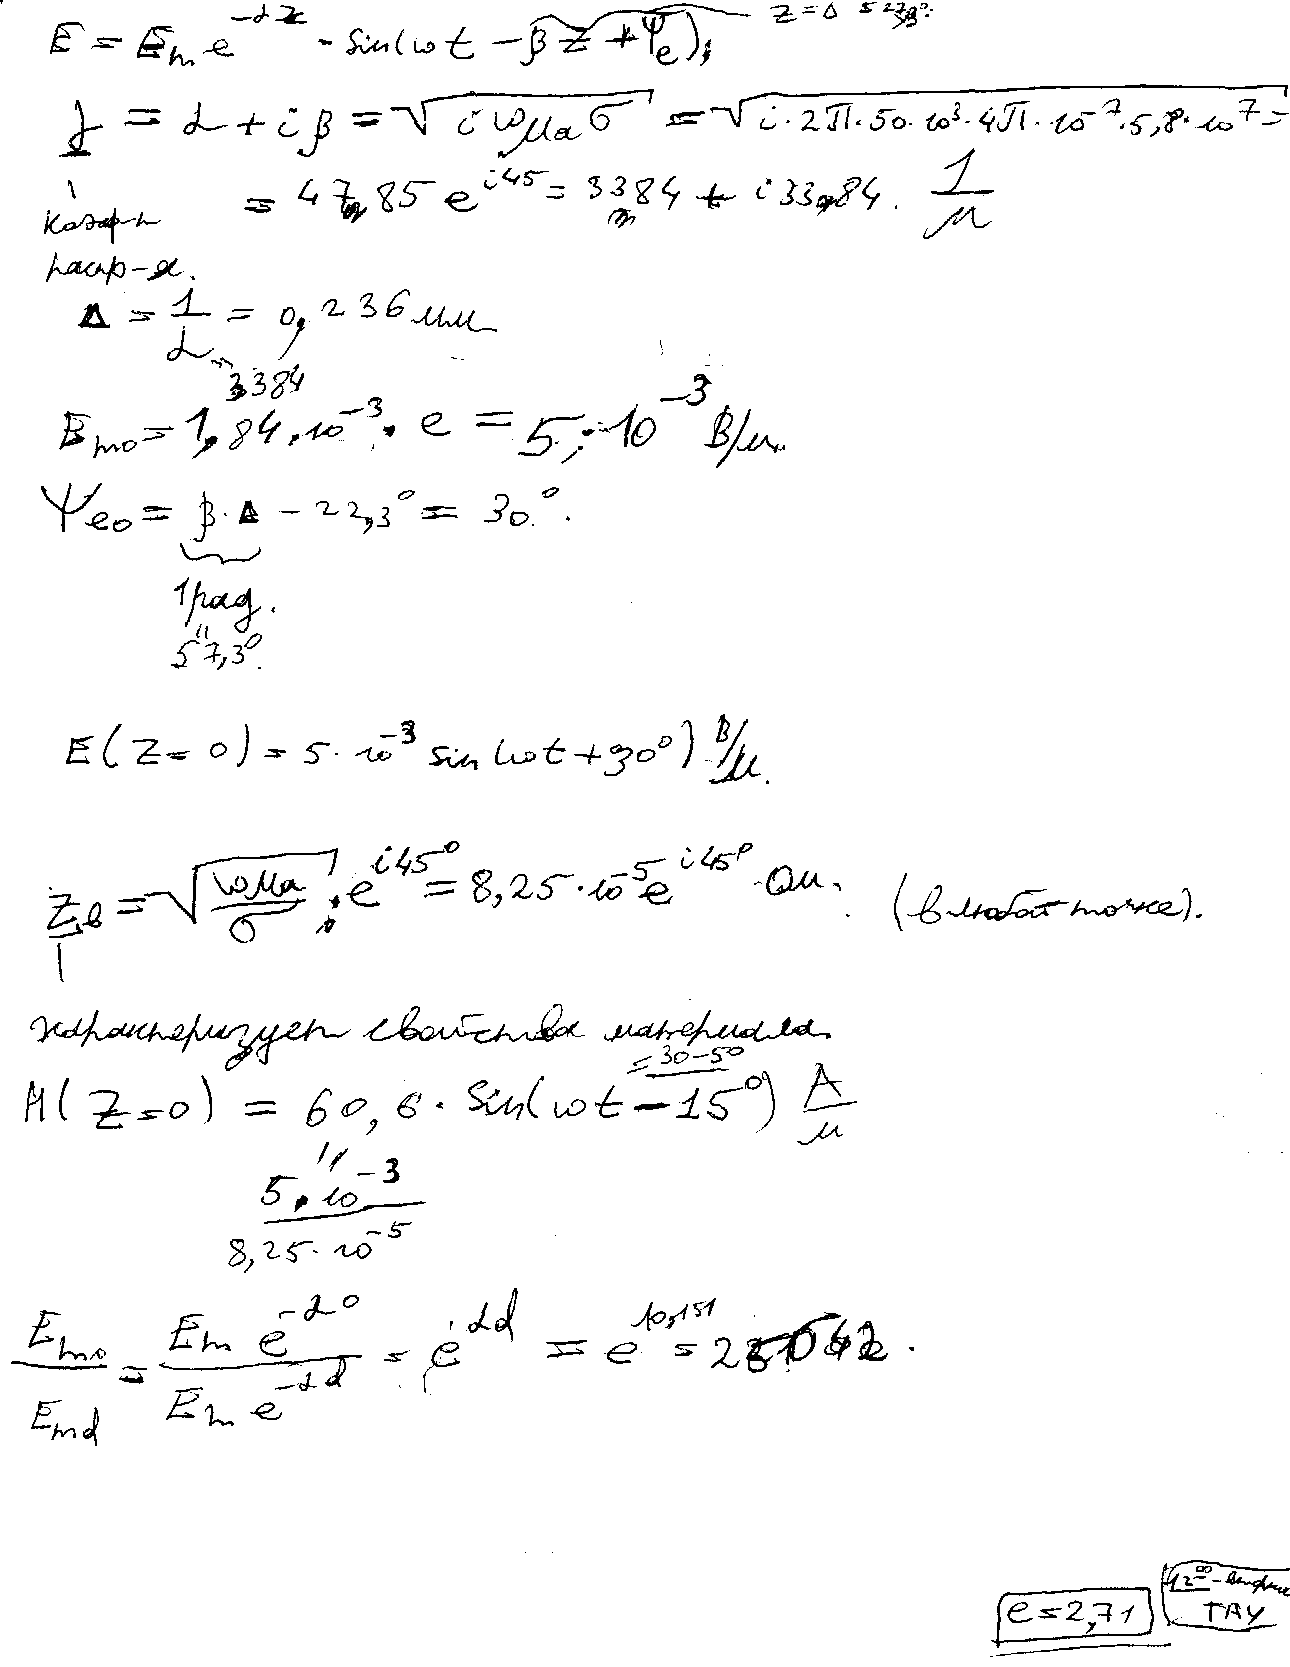 E = E_m e^{-αz} · sin(ωt - βz + Ψ_e);
γ = α + iβ = √(iωμ_a σ) = √(i · 2π · 50 · 10^3 · 4π · 10^{-7} · 5,8 · 10^7) =
= 47,85 e^{i45} = 3384 + i33,84 · 1/м
коэфф
распр-я.
Δ = 1/α = 0,236 мм
3384
E_{m0} = 1,84 · 10^{-3} · e = 5 · 10^{-3} В/м.
Ψ_{e0} = β · Δ - 22,3° = 30°.
1 рад.
"
57,3°.
E(z=0) = 5 · 10^{-3} sin(ωt + 30°) В/м.
Z_в = √(ωμ_a/σ) · e^{i45°} = 8,25 · 10^{-5} e^{i45°} Ом. (в любой точке).
характеризует свойства материала.
H(z=0) = 60,6 · sin(ωt - 15°) А/м
"
5 · 10^{-3}
8,25 · 10^{-5}
E_{m0}/E_{md} = E_m e^{-α0}/E_m e^{-αd} = e^{αd} = e^{10,151} =
e = 2,71
12⁰⁰ -
ТАУ